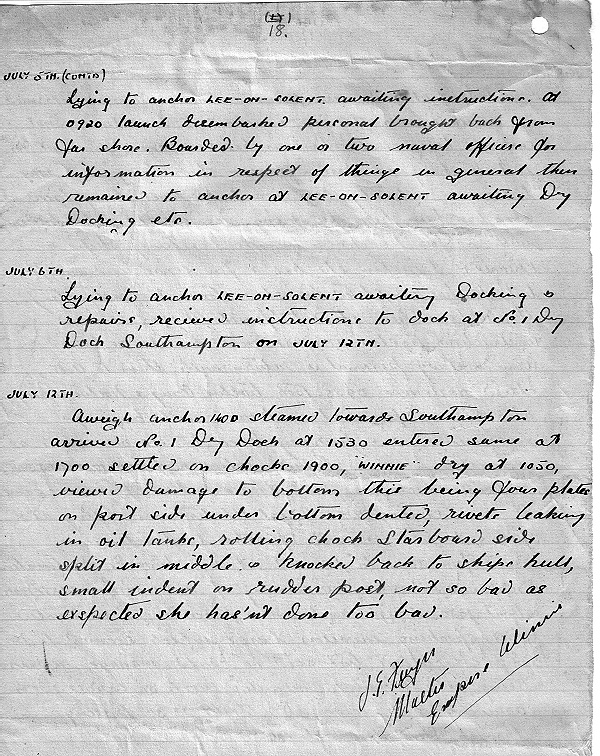 18.
JULY 5TH. (CONTD)
Lying to anchor LEE-ON-SOLENT. awaiting instructions. At
0920 launch disembarked personal brought back from
far shore. Boarded by one or two naval officers for
information in respect of things in general then
remained to anchor at LEE-ON-SOLENT awaiting Dry
Docking etc.
JULY 6TH.
Lying to anchor LEE-ON-SOLENT awaiting Docking &
repairs, recieved instructions to dock at No. 1 Dry
Dock Southampton on JULY 12TH.
JULY 12TH.
Aweigh anchor 1400 steamed towards Southampton
arrived No. 1 Dry Dock at 1530 entered same at
1700 settled on chocks 1900, "WINNIE" dry at 1050,
viewed damage to bottom this being four plates
on port side under bottom dented, rivets leaking
in oil tanks, rolling chock Starboard side
split in middle & knocked back to ships hull,
small indent on rudder post, not so bad as
expected she has'nt done too bad.
J. E.
Master
Empire Winnie